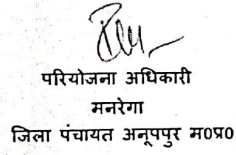 परियोजना अधिकारी
मनरेगा
जिला पंचायत अनूपपुर म०प्र०